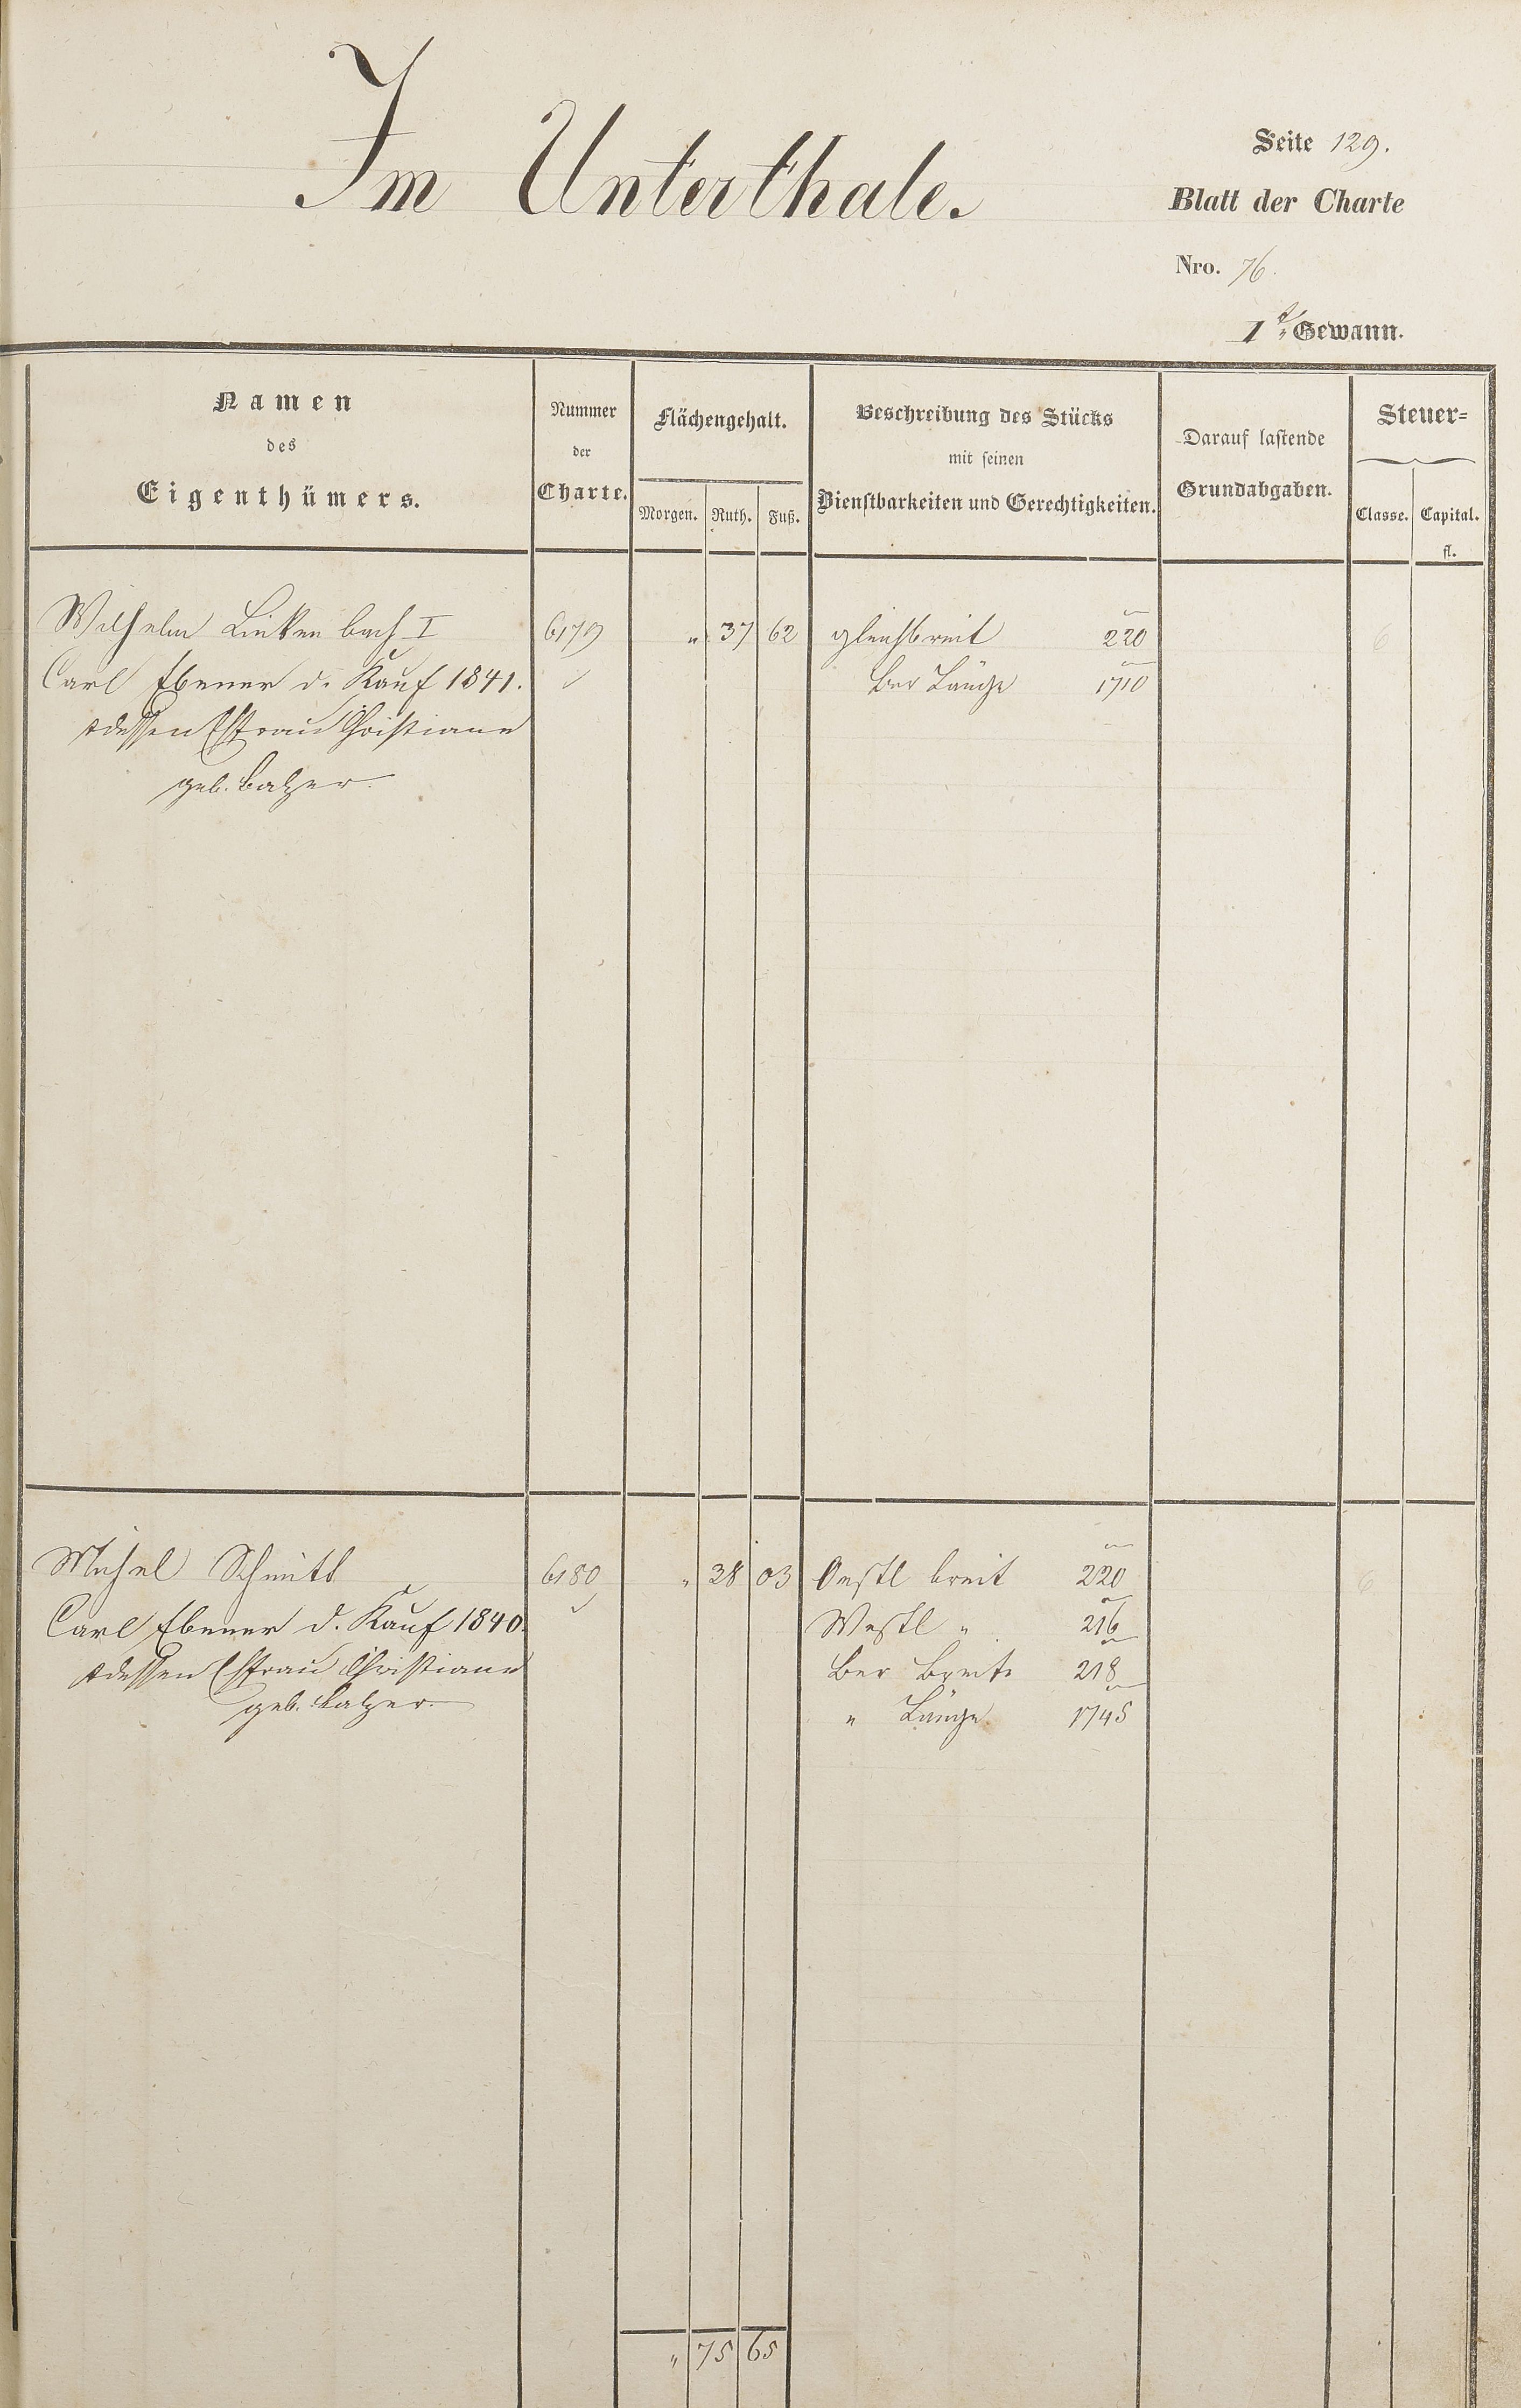 Im Unterthale.
Seite 129.
Blatt der Charte
Nro. 76.
1te Gewann.
Namen
des
Eigenthümers.
Nummer
der
Charte.
Flächengehalt.
Morgen. Ruth. Fuß.
Beschreibung des Stücks
mit seinen
Dienstbarkeiten und Gerechtigkeiten.
Darauf lastende
Grundabgaben.
Steuer=
Classe. Capital.
fl.
Wilhelm Linkenbach I 6179 " 37 62 gleichbreit 220 6
Carl Ebener d. Kauf 1841. Ber Länge 1710
& dessen Ehfrau Christiane
geb. Balzer.
Michel Schmitt 6180 " 38 03 Oestl breit 220 6
Carl Ebener d. Kauf 1840. Westl " 216
& dessen Ehfrau Christiane Ber Breite 218
geb. Balzer " Länge 1745
" 75 65